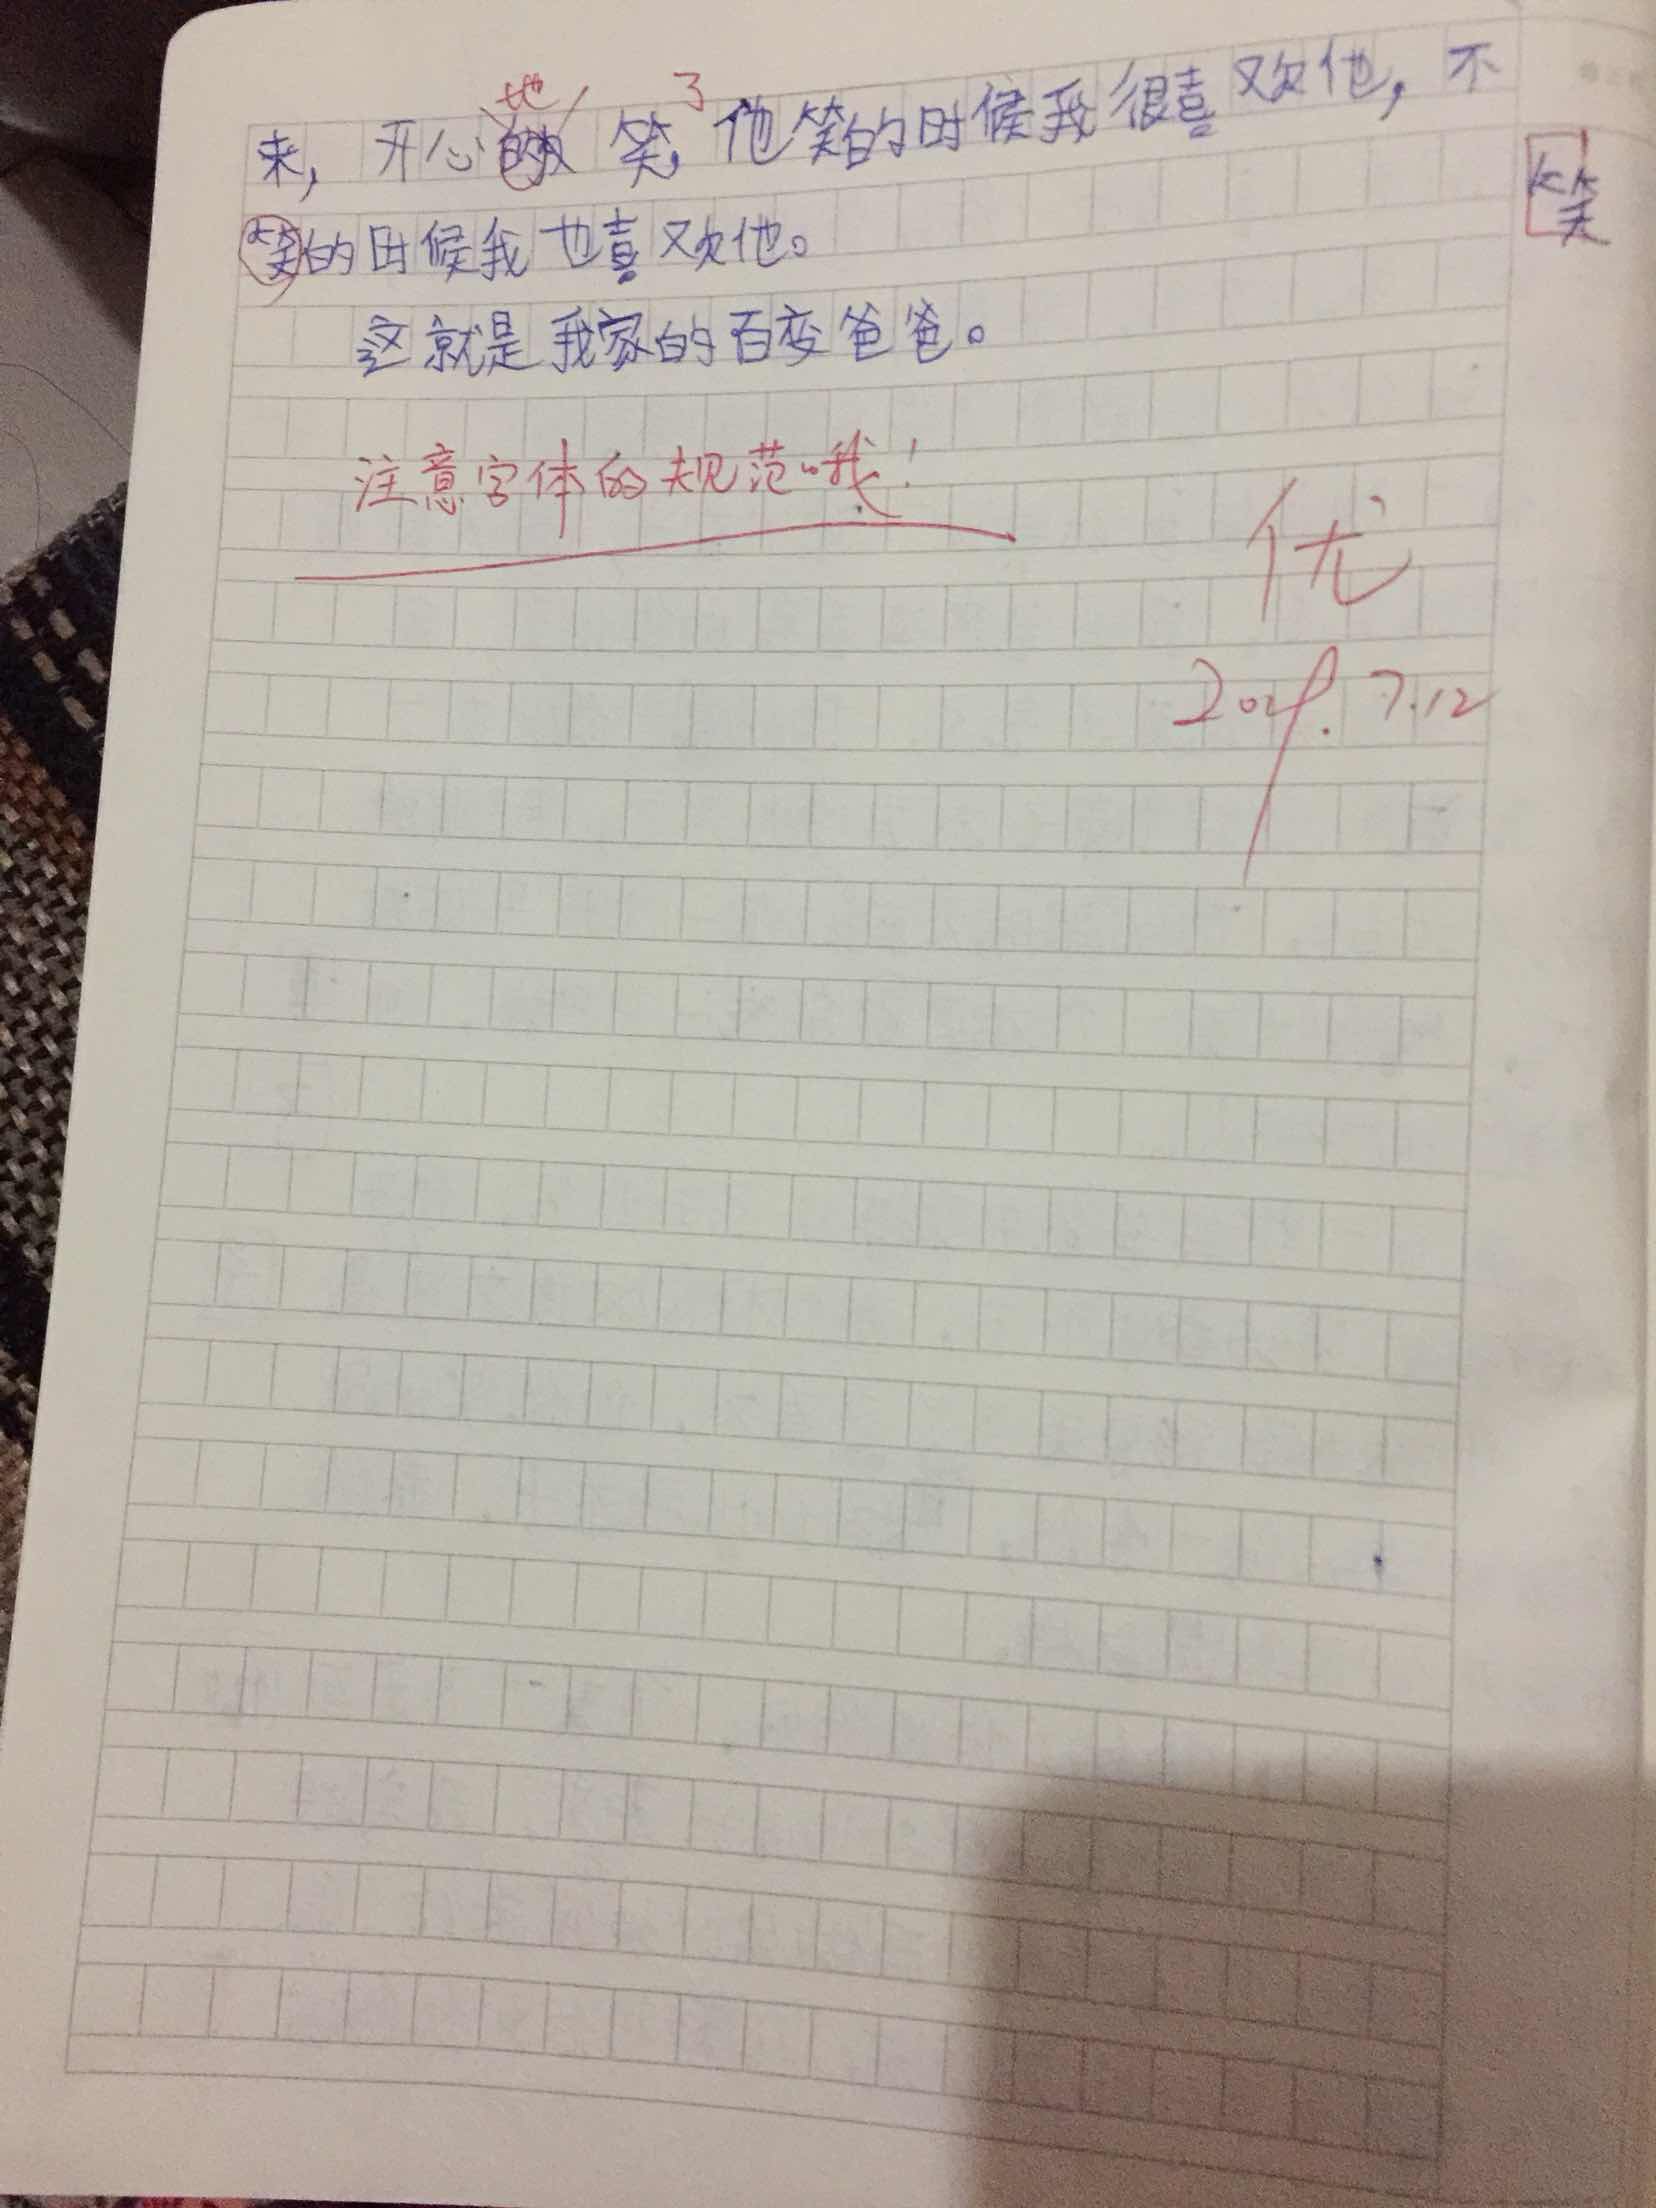 地 了
来，开心的笑，他笑的时候我很喜欢他，不
笑
笑的时候我也喜欢他。
这就是我家的百变爸爸。
注意字体的规范哦！
优
7.12